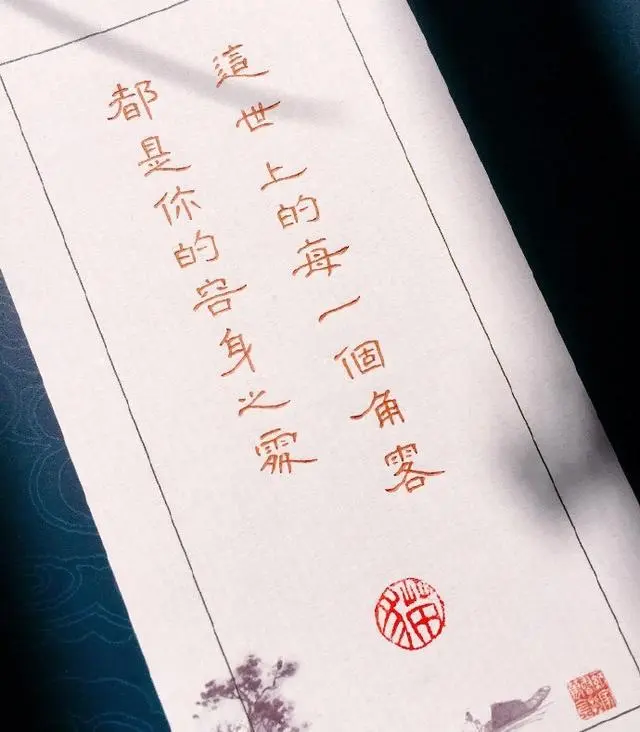 這世上的每一個角落
都是你的容身之處
猫